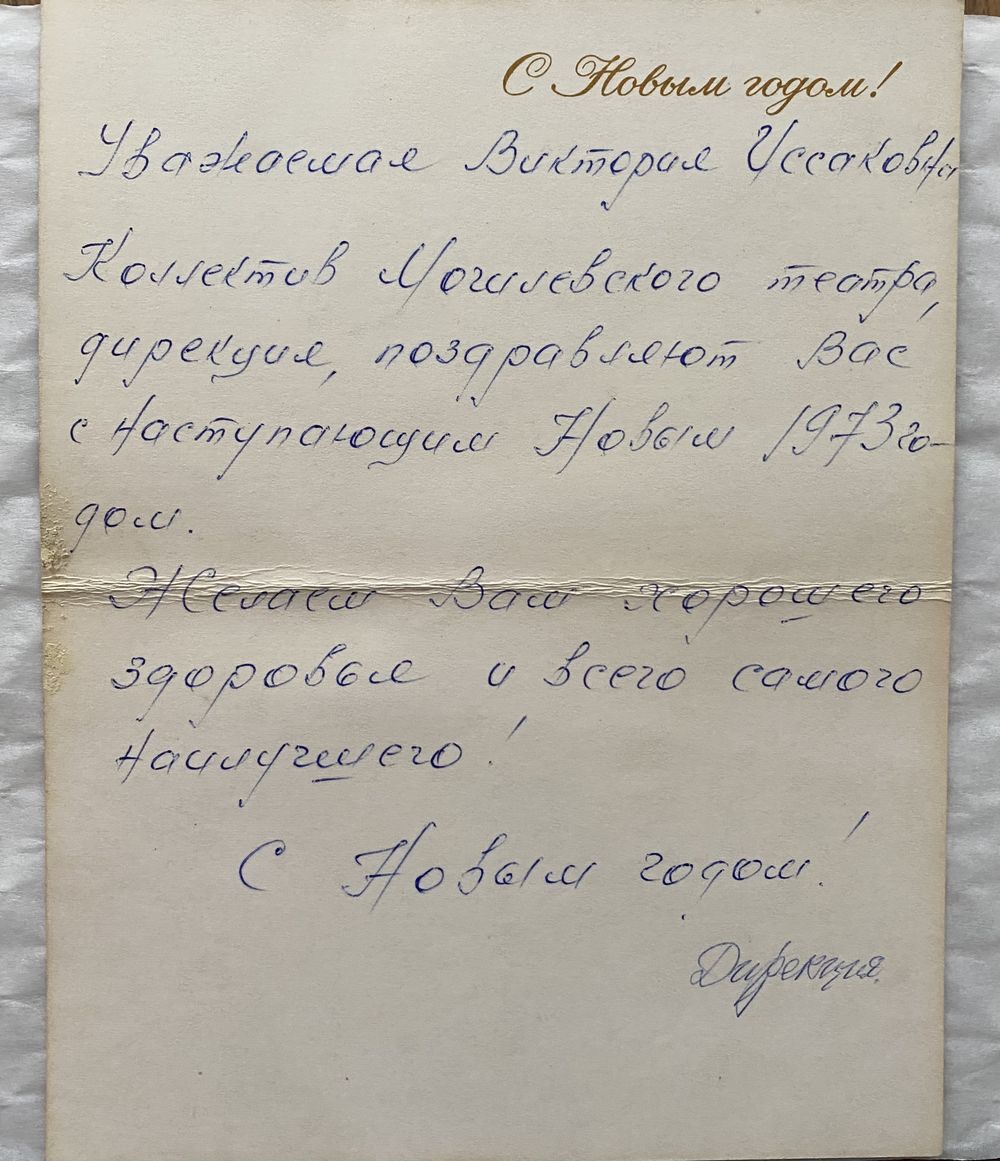 С Новым годом!
Уважаемая Виктория Иссаковна
Коллектив Могилевского театра,
дирекция, поздравляют Вас
с наступающим Новым 1973 го-
дом.
Желаем Вам хорошего
здоровья и всего самого
наилучшего!
С Новым годом!
Дирекция.